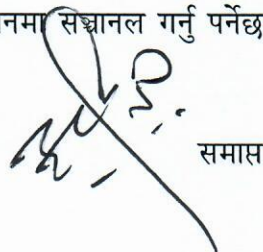 नमा सञ्चानल गर्नु पर्नेछ
समाप्त